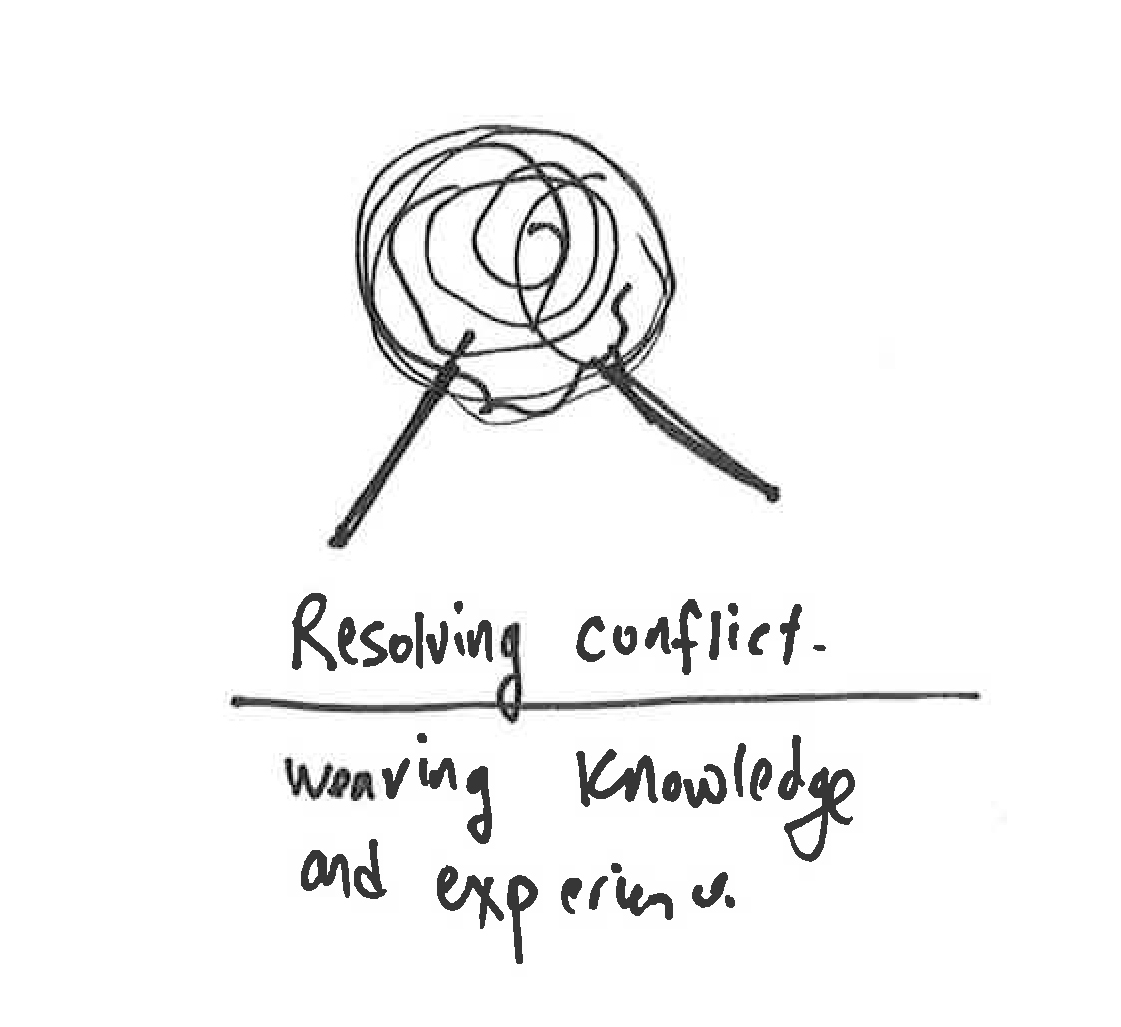 Resolving conflict.
weaving knowledge
and experience.